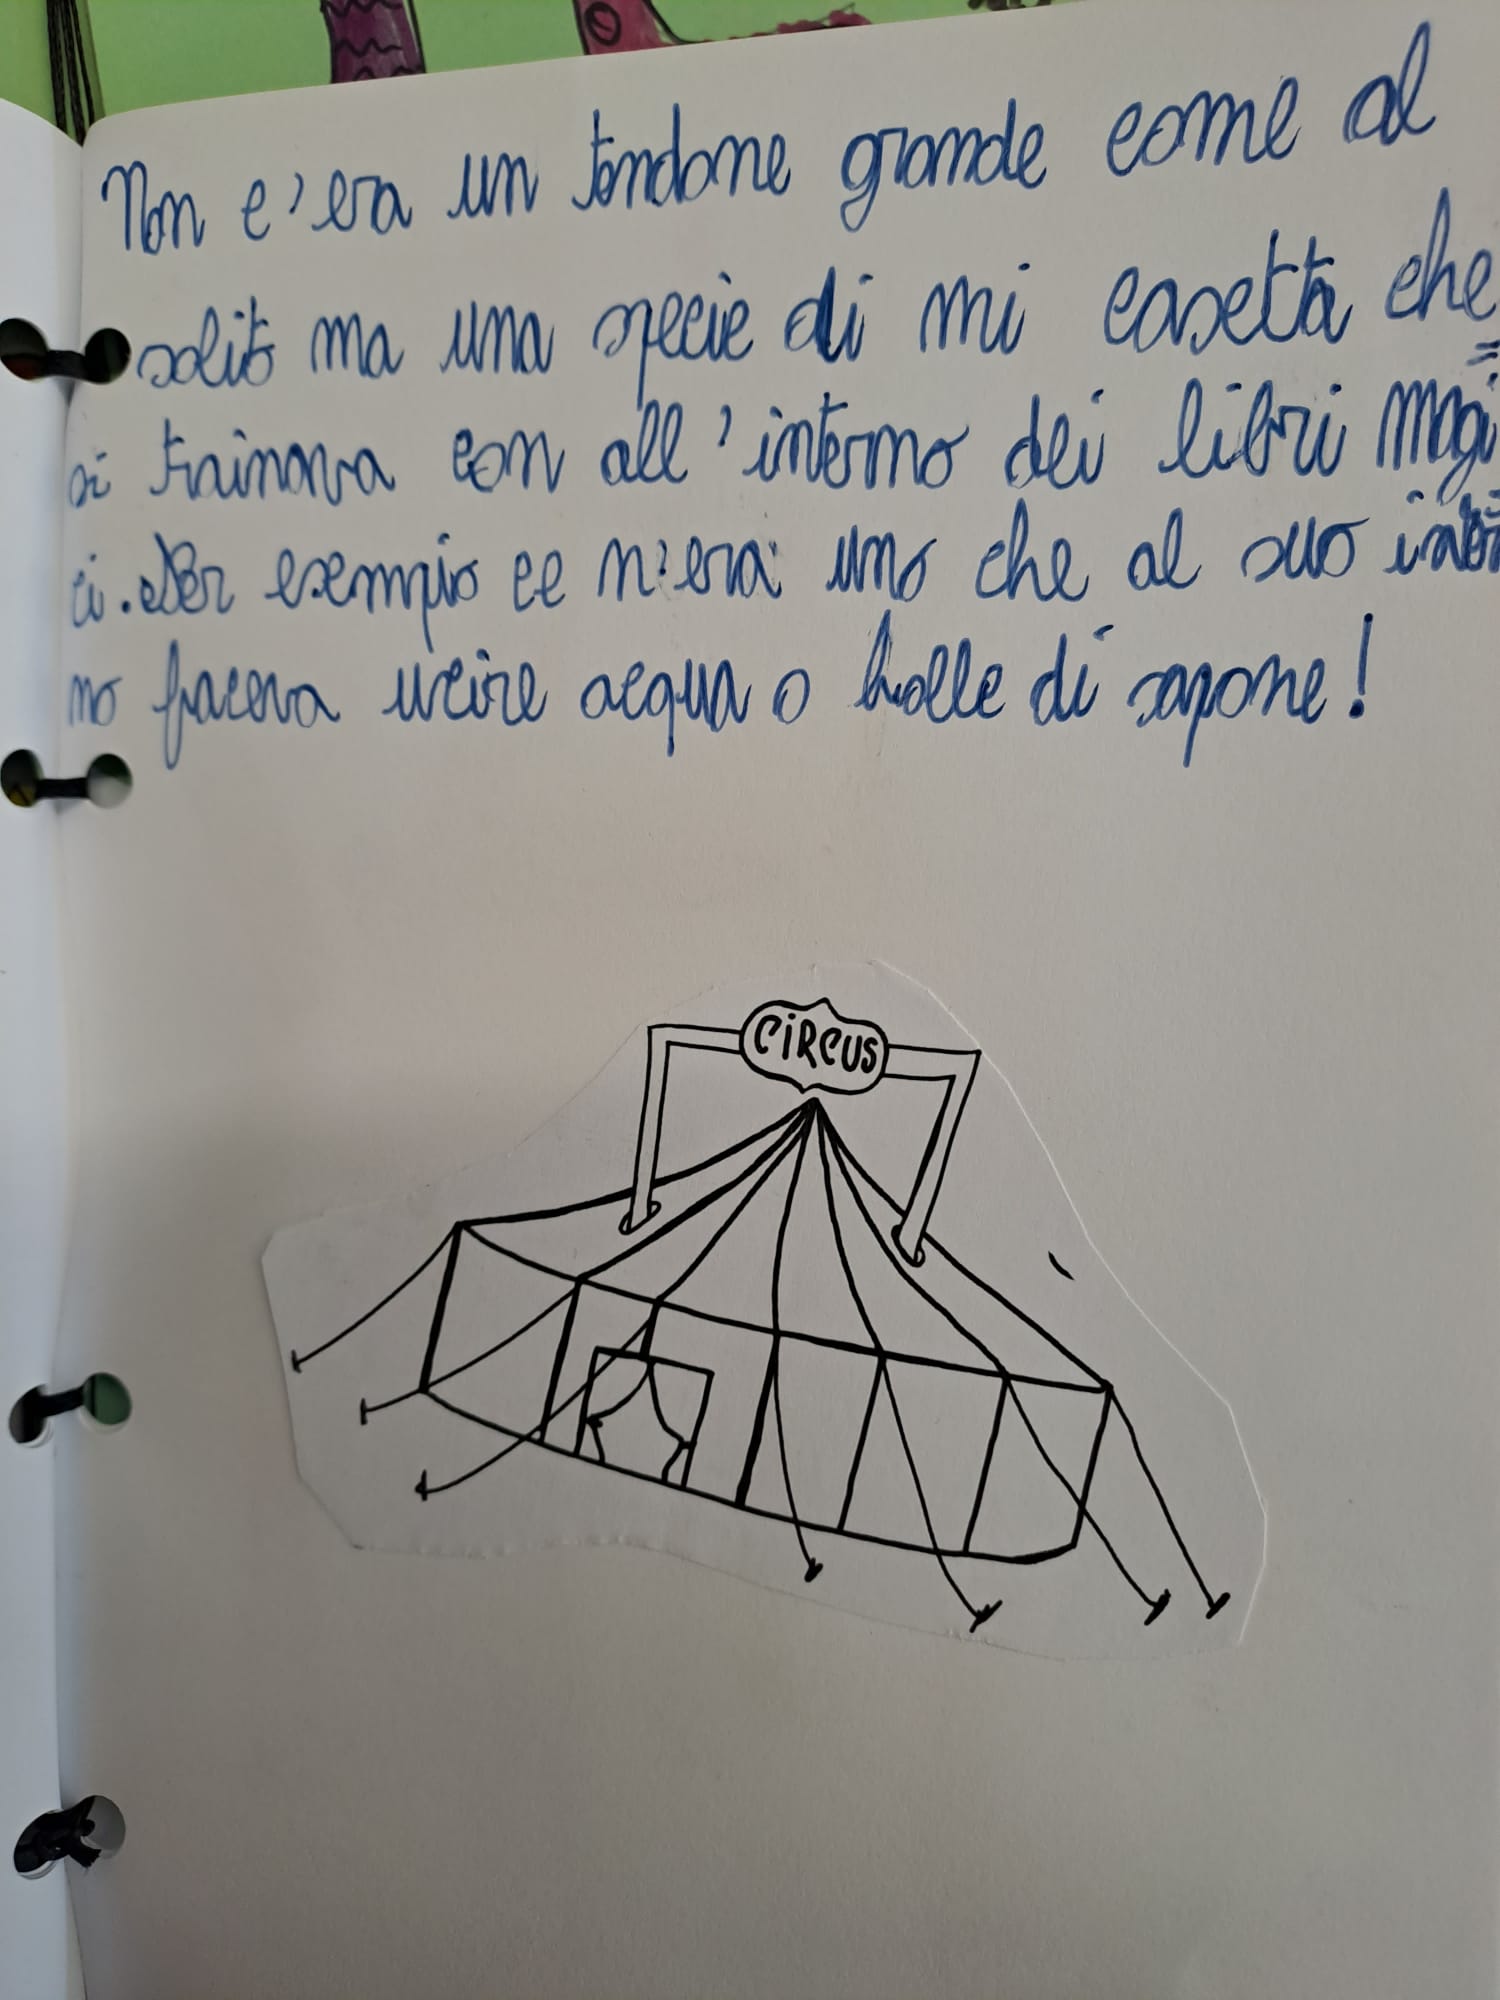 Non c'era un tendone grande come al
solito ma una specie di mi casetta che
si trainava con all'interno dei libri magi=
ci. Per esempio ce n'era uno che al suo inter=
no faceva uscire acqua o bolle di sapone!
CiRCUS